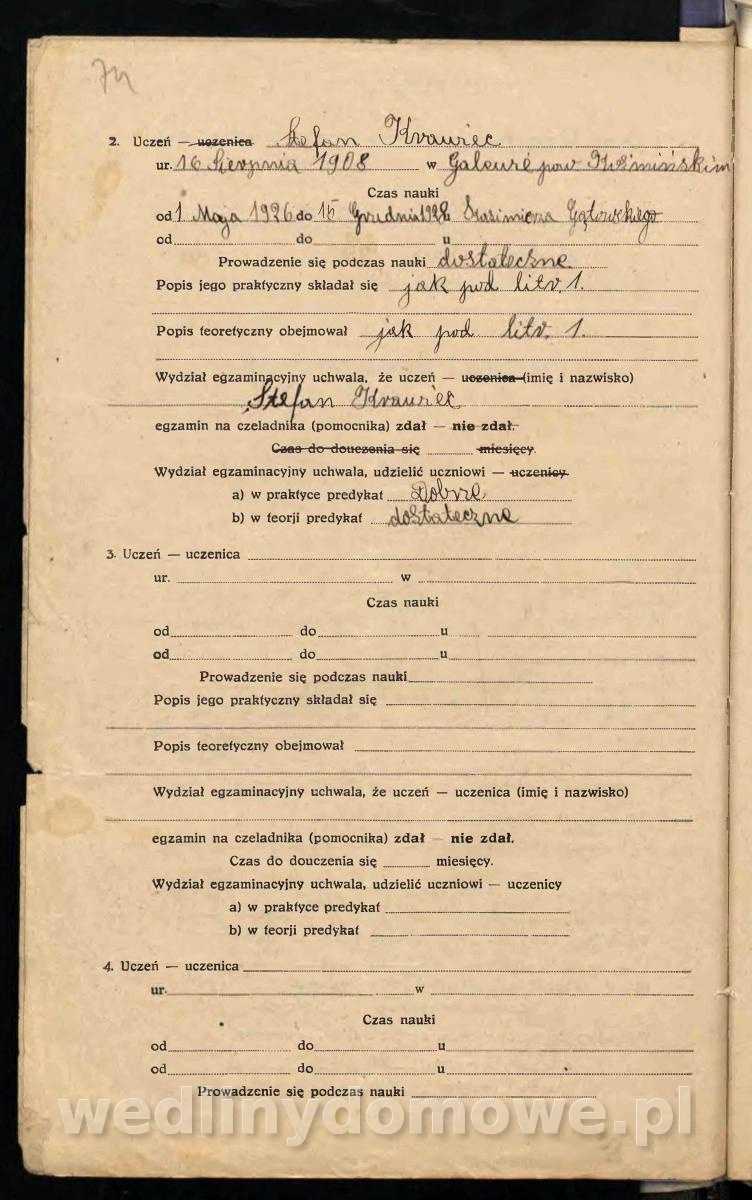 74
2. Uczeń — uczenica Stefan Krawiec
ur. 16 Sierpnia 1908 w pow
Czas nauki
od 1 Maja 1926 do 15 Grudnia 1928 u Kazimierza Gątowskiego
od do u
Prowadzenie się podczas nauki dostateczne
Popis jego praktyczny składał się jak pod litr. 1.
Popis teoretyczny obejmował jak pod litr. 1.
Wydział egzaminacyjny uchwala, że uczeń — uczenica (imię i nazwisko)
Stefan Krawiec
egzamin na czeladnika (pomocnika) zdał — nie zdał.
Czas do douczenia się miesięcy.
Wydział egzaminacyjny uchwala, udzielić uczniowi — uczenicy
a) w praktyce predykat Dobrze
b) w teorji predykat dostateczne
3. Uczeń — uczenica
ur. w
Czas nauki
od do u
od do u
Prowadzenie się podczas nauki
Popis jego praktyczny składał się
Popis teoretyczny obejmował
Wydział egzaminacyjny uchwala, że uczeń — uczenica (imię i nazwisko)
egzamin na czeladnika (pomocnika) zdał — nie zdał.
Czas do douczenia się miesięcy.
Wydział egzaminacyjny uchwala, udzielić uczniowi — uczenicy
a) w praktyce predykat
b) w teorji predykat
4. Uczeń — uczenica
ur. w
Czas nauki
od do u
od do u
Prowadzenie się podczas nauki
wedlinydomowe.pl